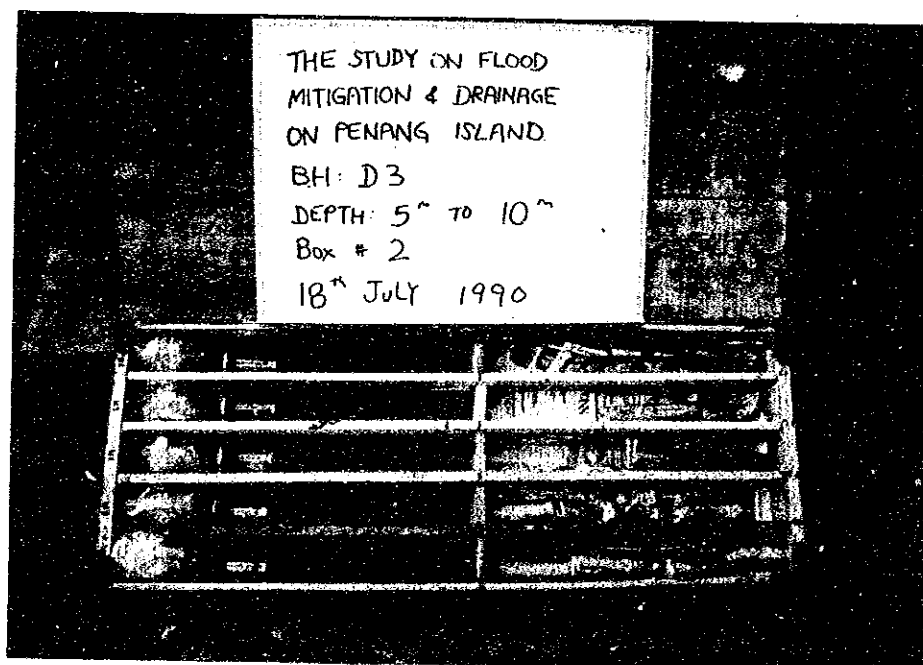 THE STUDY ON FLOOD
MITIGATION & DRAINAGE
ON PENANG ISLAND
BH: D3
DEPTH: 5m TO 10m
Box # 2
18th JULY 1990